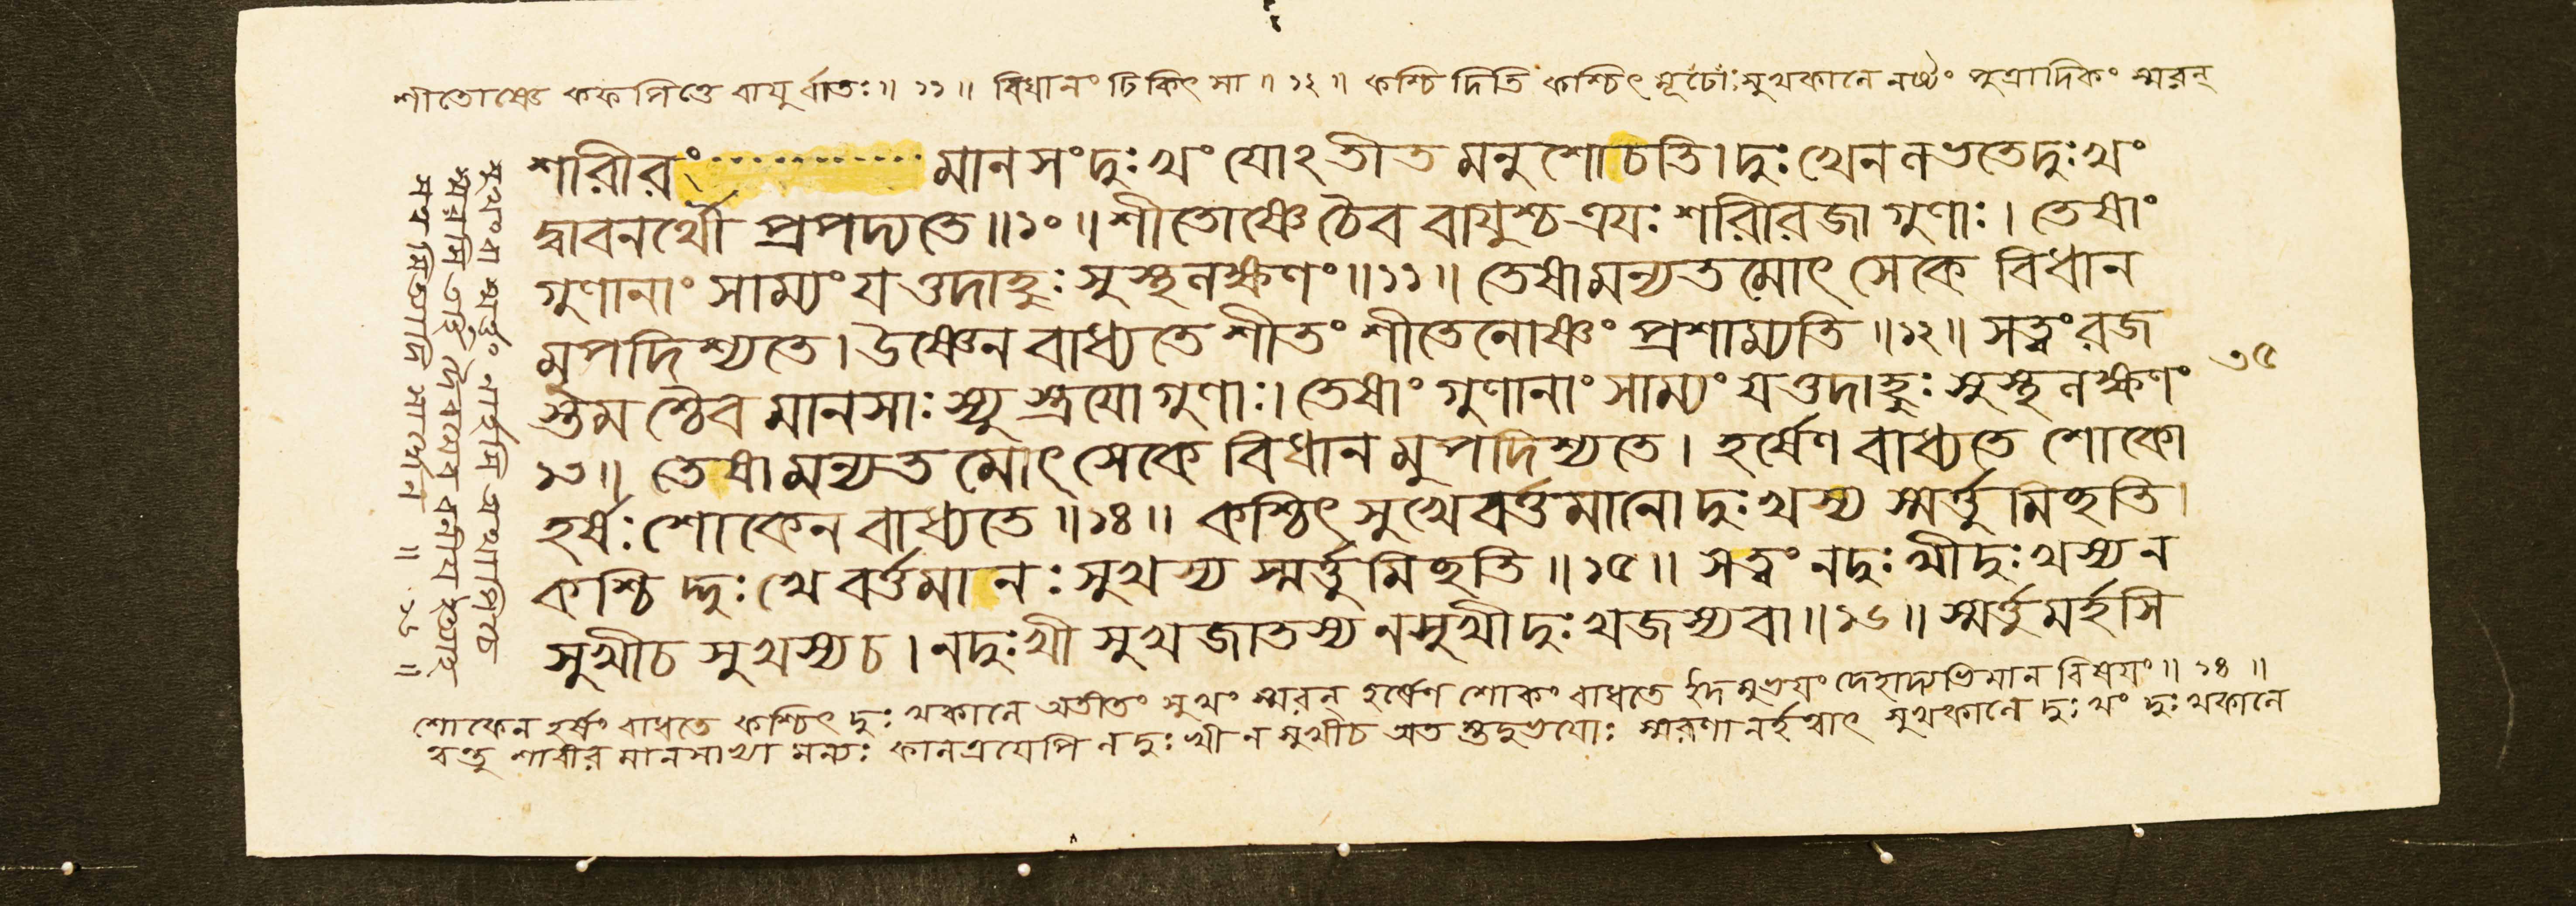 শীতোষ্ণে কফপিত্তে বায়ুর্বাতঃ॥ ১১ ॥ বিধানং চিকিৎসা ॥ ১২ ॥ কশ্চিদিতি কশ্চিৎ সুখকালে নষ্টং পুত্রাদিকং স্মরন্
শারীরং মানসংদুঃখং যোঽতীত মনুশোচতি। দুঃখেনলভতেদুঃখং
দ্বাবনর্থৌ প্রপদ্যতে॥১০॥ শীতোষ্ণে চৈব বায়ুশ্চ ত্রয়ঃ শরীরজা গুণাঃ। তেষাং
গুণানাং সাম্যং যত্তদাহুঃ সুস্থলক্ষণং॥১১॥ তেষামন্যতমোৎসেকে বিধান
মুপদিশ্যতে। উষ্ণেন বাধ্যতে শীতং শীতেনোষ্ণং প্রশাম্যতি ॥১২॥ সত্ত্বং রজ
স্তমশ্চৈব মানসাঃ স্যুস্ত্রয়ো গুণাঃ। তেষাং গুণানাং সাম্যং যত্তদাহুঃ সুস্থলক্ষণং
১৩॥ তেষামন্যতমোৎসেকে বিধানমুপদিশ্যতে। হর্ষেণ বাধ্যতে শোকো
হর্ষঃ শোকেন বাধ্যতে ॥১৪॥ কশ্চিৎ সুখে বর্ত্তমানো দুঃখস্য স্মর্ত্তুমিচ্ছতি।
কশ্চিদ্দুঃখে বর্ত্তমানঃ সুখস্য স্মর্ত্তুমিচ্ছতি॥১৫॥ সত্ত্বং নদুঃখীদুঃখস্য ন
সুখীচ সুখস্যচ। নদুঃখী সুখজাতস্য নসুখীদুঃখজস্যবা॥১৬॥ স্মর্ত্তুমর্হসি
৩৫
শোকেন হর্ষং বাধতে কশ্চিৎ দুঃখকালে অতীতং সুখং স্মরন্ হর্ষেণ শোকং বাধতে ইদমুভয়ং দেহাদ্যভিমান বিষয়ং॥ ১৪ ॥
বস্তু শারীর মানসাখ্যা কালত্রয়েপি নদুঃখী নসুখীচ অত স্তদুভয়োঃ স্মরণানর্হত্বাৎ সুখকালে দুঃখং দুঃখকালে
সুখংবা স্মর্ত্তুং নার্হসি তথাপিচ
স্মরসি তর্হি
॥ ১৬ ॥